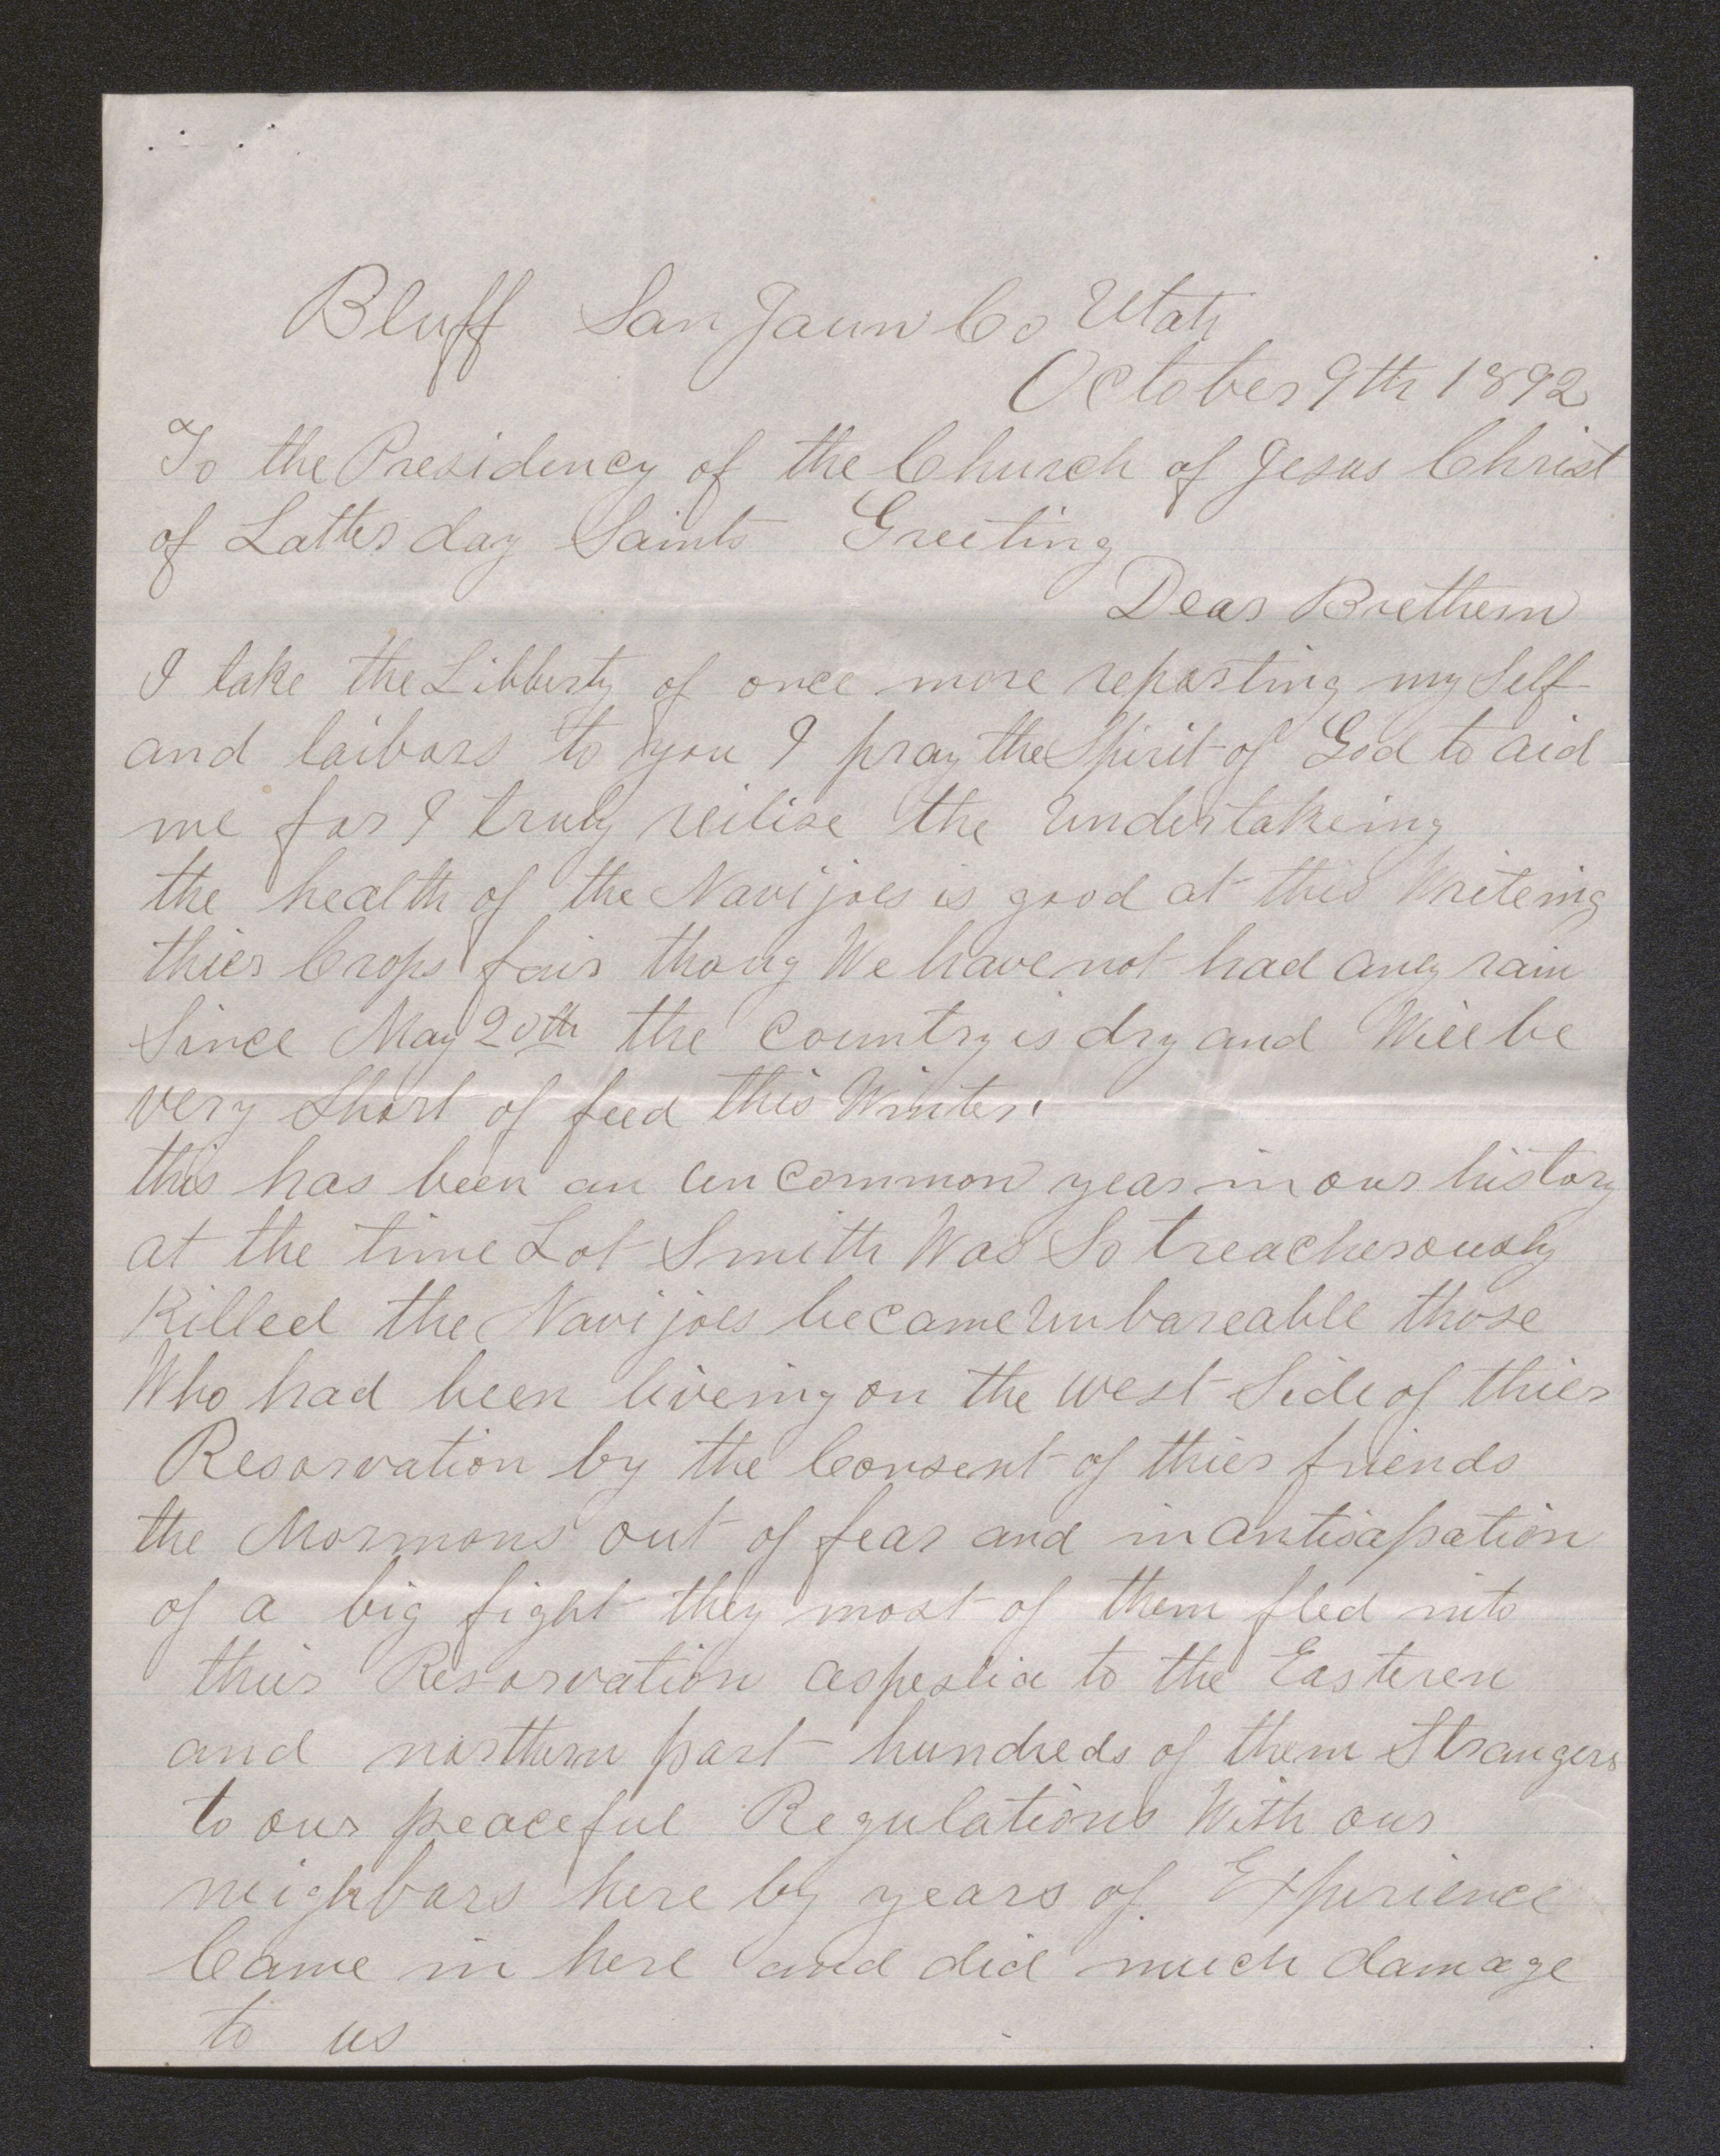 Bluff San Jaun Co Utah
October 9th 1892
To the Presidency of the Church of Jesus Christ
of Latter day Saints Greeting
Dear Brethern
I take the Libberty of once more reporting my Self
and laibors to you I pray the Spirit of God to aid
me for I truly reilise the undertakeing
the health of the Navijoes is good at this Writeing
thier Crops fair thoug We have not had any rain
Since May 20th the Country is dry and Will be
very Short of feed this Winter.
this has been an un common year in our history
at the time Lot Smith Was So treacherously
Killed the Navijoes became un bareable those
Who had been liveing on the west Side of thier
Resorvation by the Consent of thier friends
the Mormons out of fear and in antisapation
of a big fight they most of them fled into
thier Resorvation aspeslia to the Easteren
and northern part hundreds of them Strangers
to our peaceful Regulations With our
neighbors here by years of Experience
Came in here and did much damage
to us